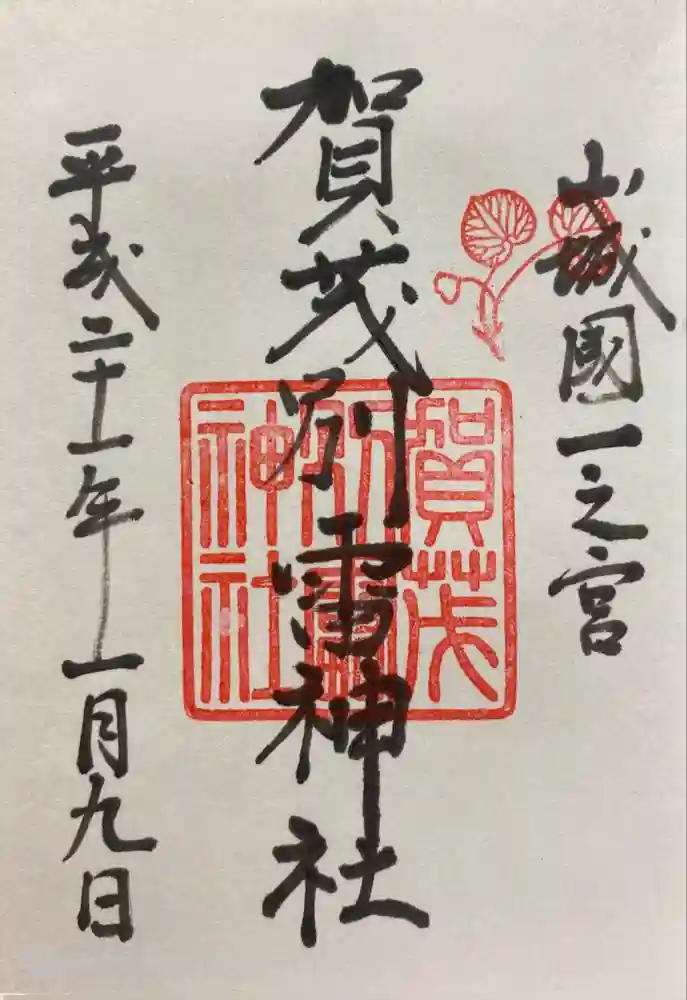 山城國一之宮
賀茂別雷神社
賀茂別雷神社
平成二十一年一月九日